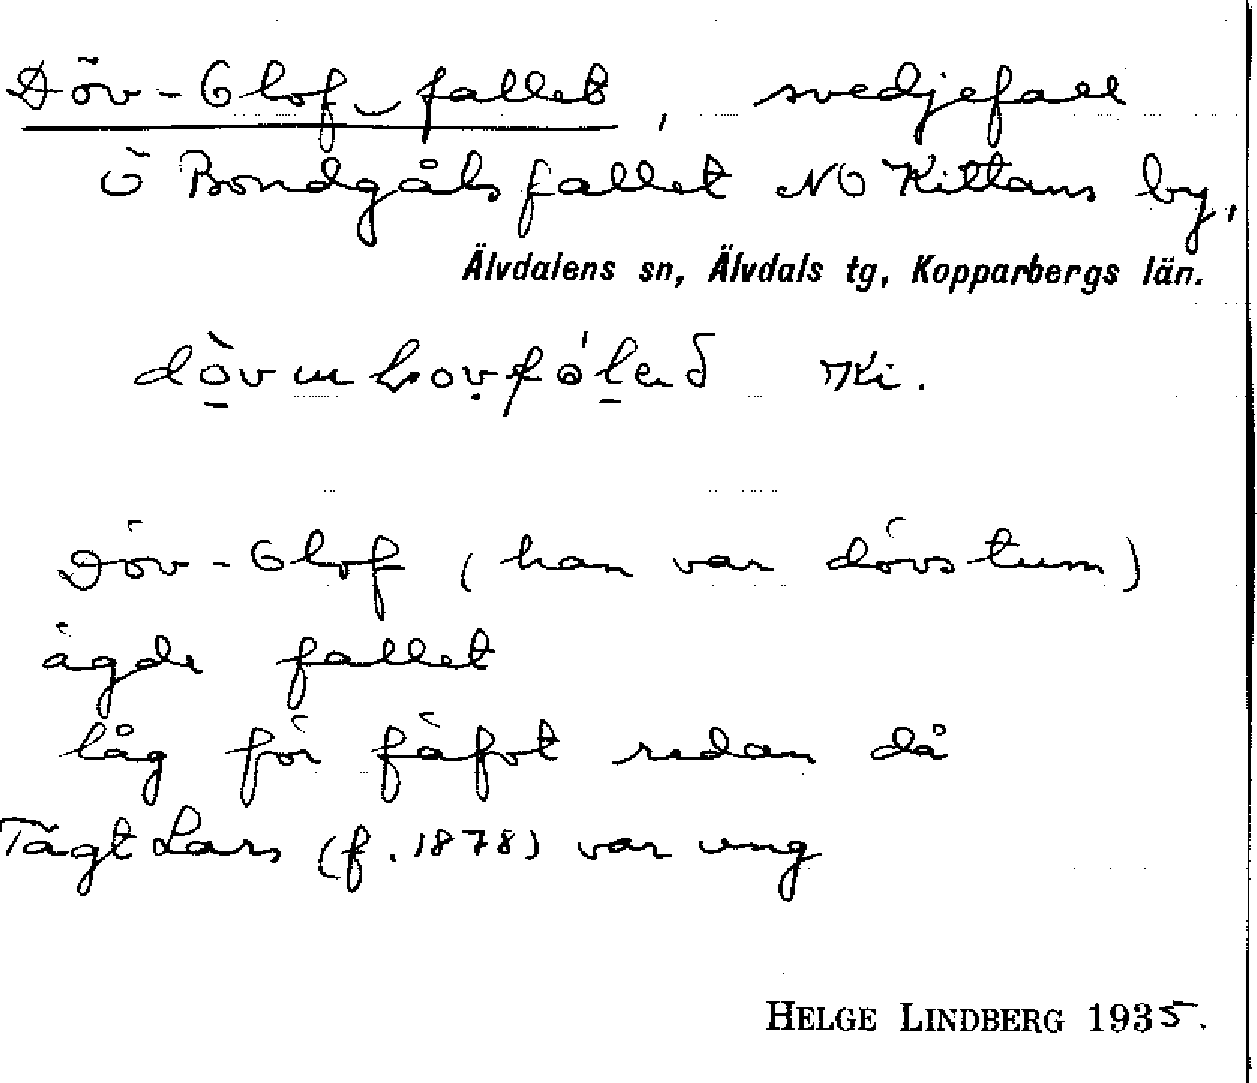 Döv-Olof-fallet, svedjefall
Ö Bondgålsfallet NO Kittans by,
Älvdalens sn, Älvdals tg, Kopparbergs län.
Ki.
Döv-Olof (han var dövstum)
ägde fallet
låg för fäfot redan då
Tägt Lars (f. 1878) var ung
HELGE LINDBERG 1935.